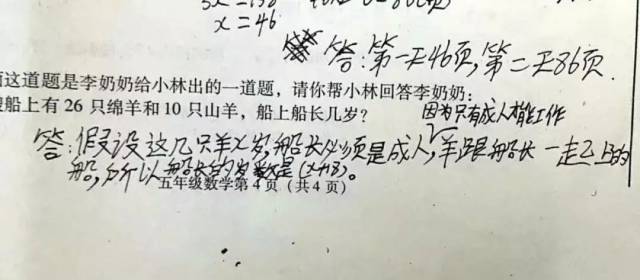 x=46
答:第一天46页,第二天86页.
这道题是李奶奶给小林出的一道题,请你帮小林回答李奶奶:
船上有 26 只绵羊和 10 只山羊,船上船长几岁?
因为只有成人才能工作
答:假设这几只羊x岁,船长必须是成人,羊跟船长一起上的
船,所以船长的岁数是(x+18)。
五年级数学第 4 页(共 4 页)